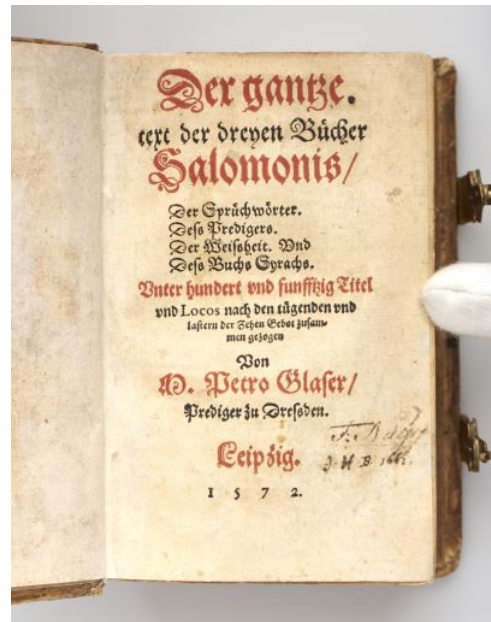 Der gantze.
text der dreyen Bücher
Salomonis/
Der Sprüchwörter.
Deſs Predigers.
Der Weiſsheit. Vnd
Deſs Buchs Syrachs.
Vnter hundert vnd funfftzig Titel
vnd Locos nach den tügenden vnd
laſtern der Zehen Gebot zuſam-
men gezogen
Von
M. Petro Glaſer/
Prediger zu Dreſsden.
Leipzig.
1 5 7 2.